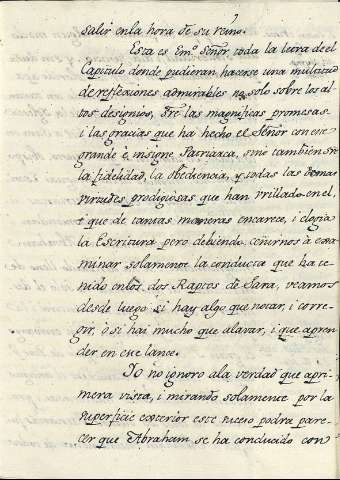 salir en la hora de su reino.
Esta es Em.º Señor toda la letra de el
Capitulo donde pudieran hacerse una multitud
de reflexiones admirables no solo sobre los al-
tos designios, sre las magnificas promesas
i las gracias que ha hecho el Señor con este
grande è insigne Patriarca, sinò tambien sre
la fidelidad, la obediencia, y todas las demas
virtudes prodigiosas que han brillado en el,
i que de tantas maneras encarece, i elogia
la Escritura pero debiendo ceñirnos à exa
minar solamente la conducta que ha te
nido en los dos Raptos de Sara, veamos
desde luego si hay algo que notar, i corre-
gir, ò si hai mucho que alavar, i que apren
der en este lance.
Yo no ignoro a la verdad que a pri-
mera vista, i mirando solamente por la
superficie exterior este suceso podra pare-
cer que Abraham se ha conducido con